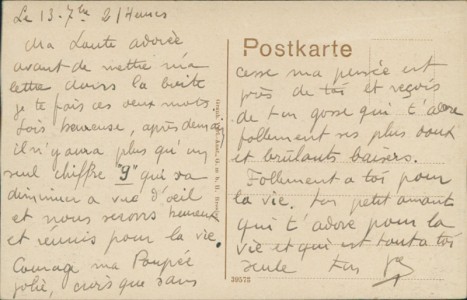 Le 13-7bre 21 Heures
Ma adorée
avant de mettre ma
lettre dans la boîte
je te fais ces deux mots.
Sois heureuse, après demain
il n'y aura plus qu'un
seul chiffre "9" qui va
diminuer à vue d'oeil
et nous serons heureux
et réunis pour la vie.
Courage ma Poupée
jolie, crois que sans
Postkarte
cesse ma pensée est
près de toi et reçois
de ton gosse qui t'adore
follement ses plus doux
et brûlants baisers.
Follement a toi pour
la vie. ton petit amant
qui t'adore pour la
vie et qui est tout a toi
seule ton
39575